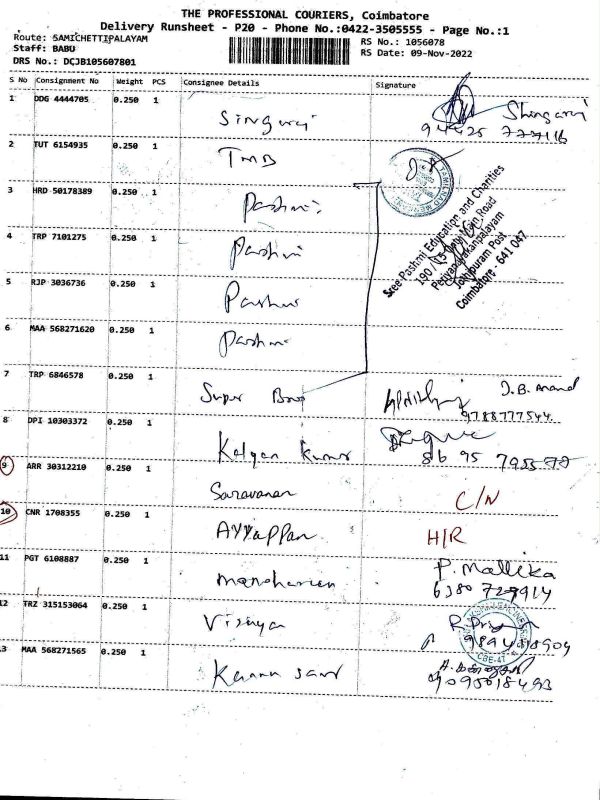 THE PROFESSIONAL COURIERS, Coimbatore
Delivery Runsheet - P20 - Phone No.:0422-3505555 - Page No.:1
Route: SAMICHETTIPALAYAM
Staff: BABU
DRS No.: DCJB105607801
RS No.: 1056078
RS Date: 09-Nov-2022
S No Consignment No Weight PCS Consignee Details Signature
1 DDG 4444705 0.250 1 Singuraj Shingaraj
94425 777116
2 TUT 6154935 0.250 1 TMB
TAMILNAD
3 HRD 50178389 0.250 1 Pashmi
Sree Pashmi Education and Charities
Periyanaickanpalayam
Jothipuram Post
Coimbatore - 641 047
4 TRP 7101275 0.250 1 Pashmi
5 RJP 3036736 0.250 1 Pashmi
6 MAA 568271620 0.250 1 Pashmi
7 TRP 6846578 0.250 1 Super J.B. Anand
9788777544
8 DPI 10303372 0.250 1 Kalyan Kumar
9 ARR 30312210 0.250 1 Saravanan C/N
10 CNR 1708355 0.250 1 Ayyappan H/R
11 PGT 6108887 0.250 1 P. Mallika
6380 729914
12 TRZ 315153064 0.250 1 R. Priya
CBE-47
13 MAA 568271565 0.250 1
9095018493